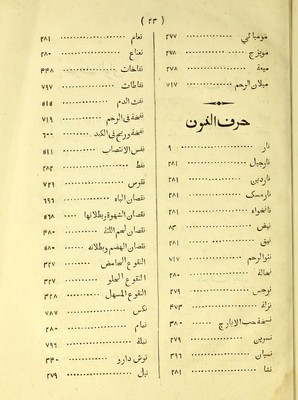 ( ٢٣ )
موميائي ٢٧٧
مويزج ٢٩٨
ميعة ٢٧٨
ميلان الرحم ٧١٧
حرف النون
نار ٩
نارجيل ٢٨١
ناردين ٢٨١
نارمسك ٢٨١
نانخواه ٢٨١
نبض ٨٣
نبق ٢٨١
نتو الرحم ٧١٧
نخالة ٢٨٠
نرجس ٢٧٩
نزلة ٤٧٣
نسخة حب الايارج ٣٨٠
نسرين ٢٧٩
نسيان ٣٩٦
نشا ٢٨١
نعام ٢٨١
نعناع ٢٨٠
نفاخات ٤٤٨
نفاطات ٧٩٧
نفث الدم ٥١٥
نفخة في الرحم ٧١٩
نفخة وريح في الكبد ٦٠٠
نفس الانتصاب ٥١١
نفط ٢٨٢
نقرس ٧٢٩
نقصان الباه ٦٩٦
نقصان الشهوة وبطلانها ٥٦٨
نقصان لحم اللثة ٤٨٠
نقصان الهضم وبطلانه ٥٨٠
النقوع الحامض ٣٢٧
النقوع الحلو ٣٢٧
النقوع المسهل ٣٢٨
نكس ٧٨٧
نمام ٢٨٠
نملة ٧٩٦
نوش دارو ٣٤٠
نيل ٢٧٩